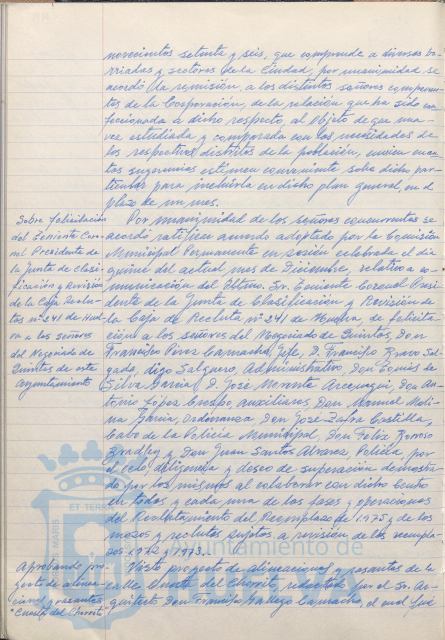 novecientos setenta y seis, que comprende a diversas ba-
rriadas y sectores de la Ciudad, por unanimidad se
acordó la remisión, a los distintos señores componen-
tes de la Corporación, de la relación que ha sido con-
feccionada a dicho respecto, al objeto de que una
vez estudiada y comparada con las necesidades de
los respectivos distritos de la población, envíen cuan-
tas sugerencias estimen conveniente sobre dicho par-
ticular para incluirla en dicho plan general, en el
plazo de un mes.
Sobre felicitación
del Teniente Coro-
nel Presidente de
la Junta de Clasi-
ficación y Revisión
de la Caja Reclu-
tas nº 241 de Huel-
va a los señores
del Negociado de
Quintas de este
Ayuntamiento
Por unanimidad de los señores concurrentes se
acordó ratificar acuerdo adoptado por la Comisión
Municipal Permanente en sesión celebrada el día
quince del actual mes de Diciembre, relativo a co-
municación del Iltmo. Sr. Teniente Coronel Presi-
dente de la Junta de Clasificación y Revisión de
la Caja de Recluta nº 241 de Huelva, de felicita-
ción a los señores del Negociado de Quintas, Don
Francisco Pérez Camacho, Jefe, D. Francisco Bravo Sal-
gada, digo Salguero, Administrativo, Don Tomás de
Silva García, D. José Morante Don An-
tonio López Crespo, auxiliares, Don Manuel Moli-
na García, Ordenanza, Don José Zafra Castilla,
Cabo de la Policía Municipal, Don Felix Barroso
Bradley y Don Juan Santos Alvarez, Policía, por
el celo, diligencia y deseo de superación demostra-
do por los mismos al colaborar con dicho Centro
en todas y cada una de las fases y operaciones
del Reclutamiento del Reemplazo de 1.975 y de los
mozos y reclutas sujetos a revisión de los reempla-
zos 1972 y 1973.
Aprobando pro-
yecto de alinea-
ciones y rasantes
"Cuesta del Chorrito"
Visto proyecto de alineaciones y rasantes de la
calle Cuesta del Chorrito, redactado por el Sr. Ar-
quitecto Don Francisco Gallego Camacho, el cual fué
Ayuntamiento de